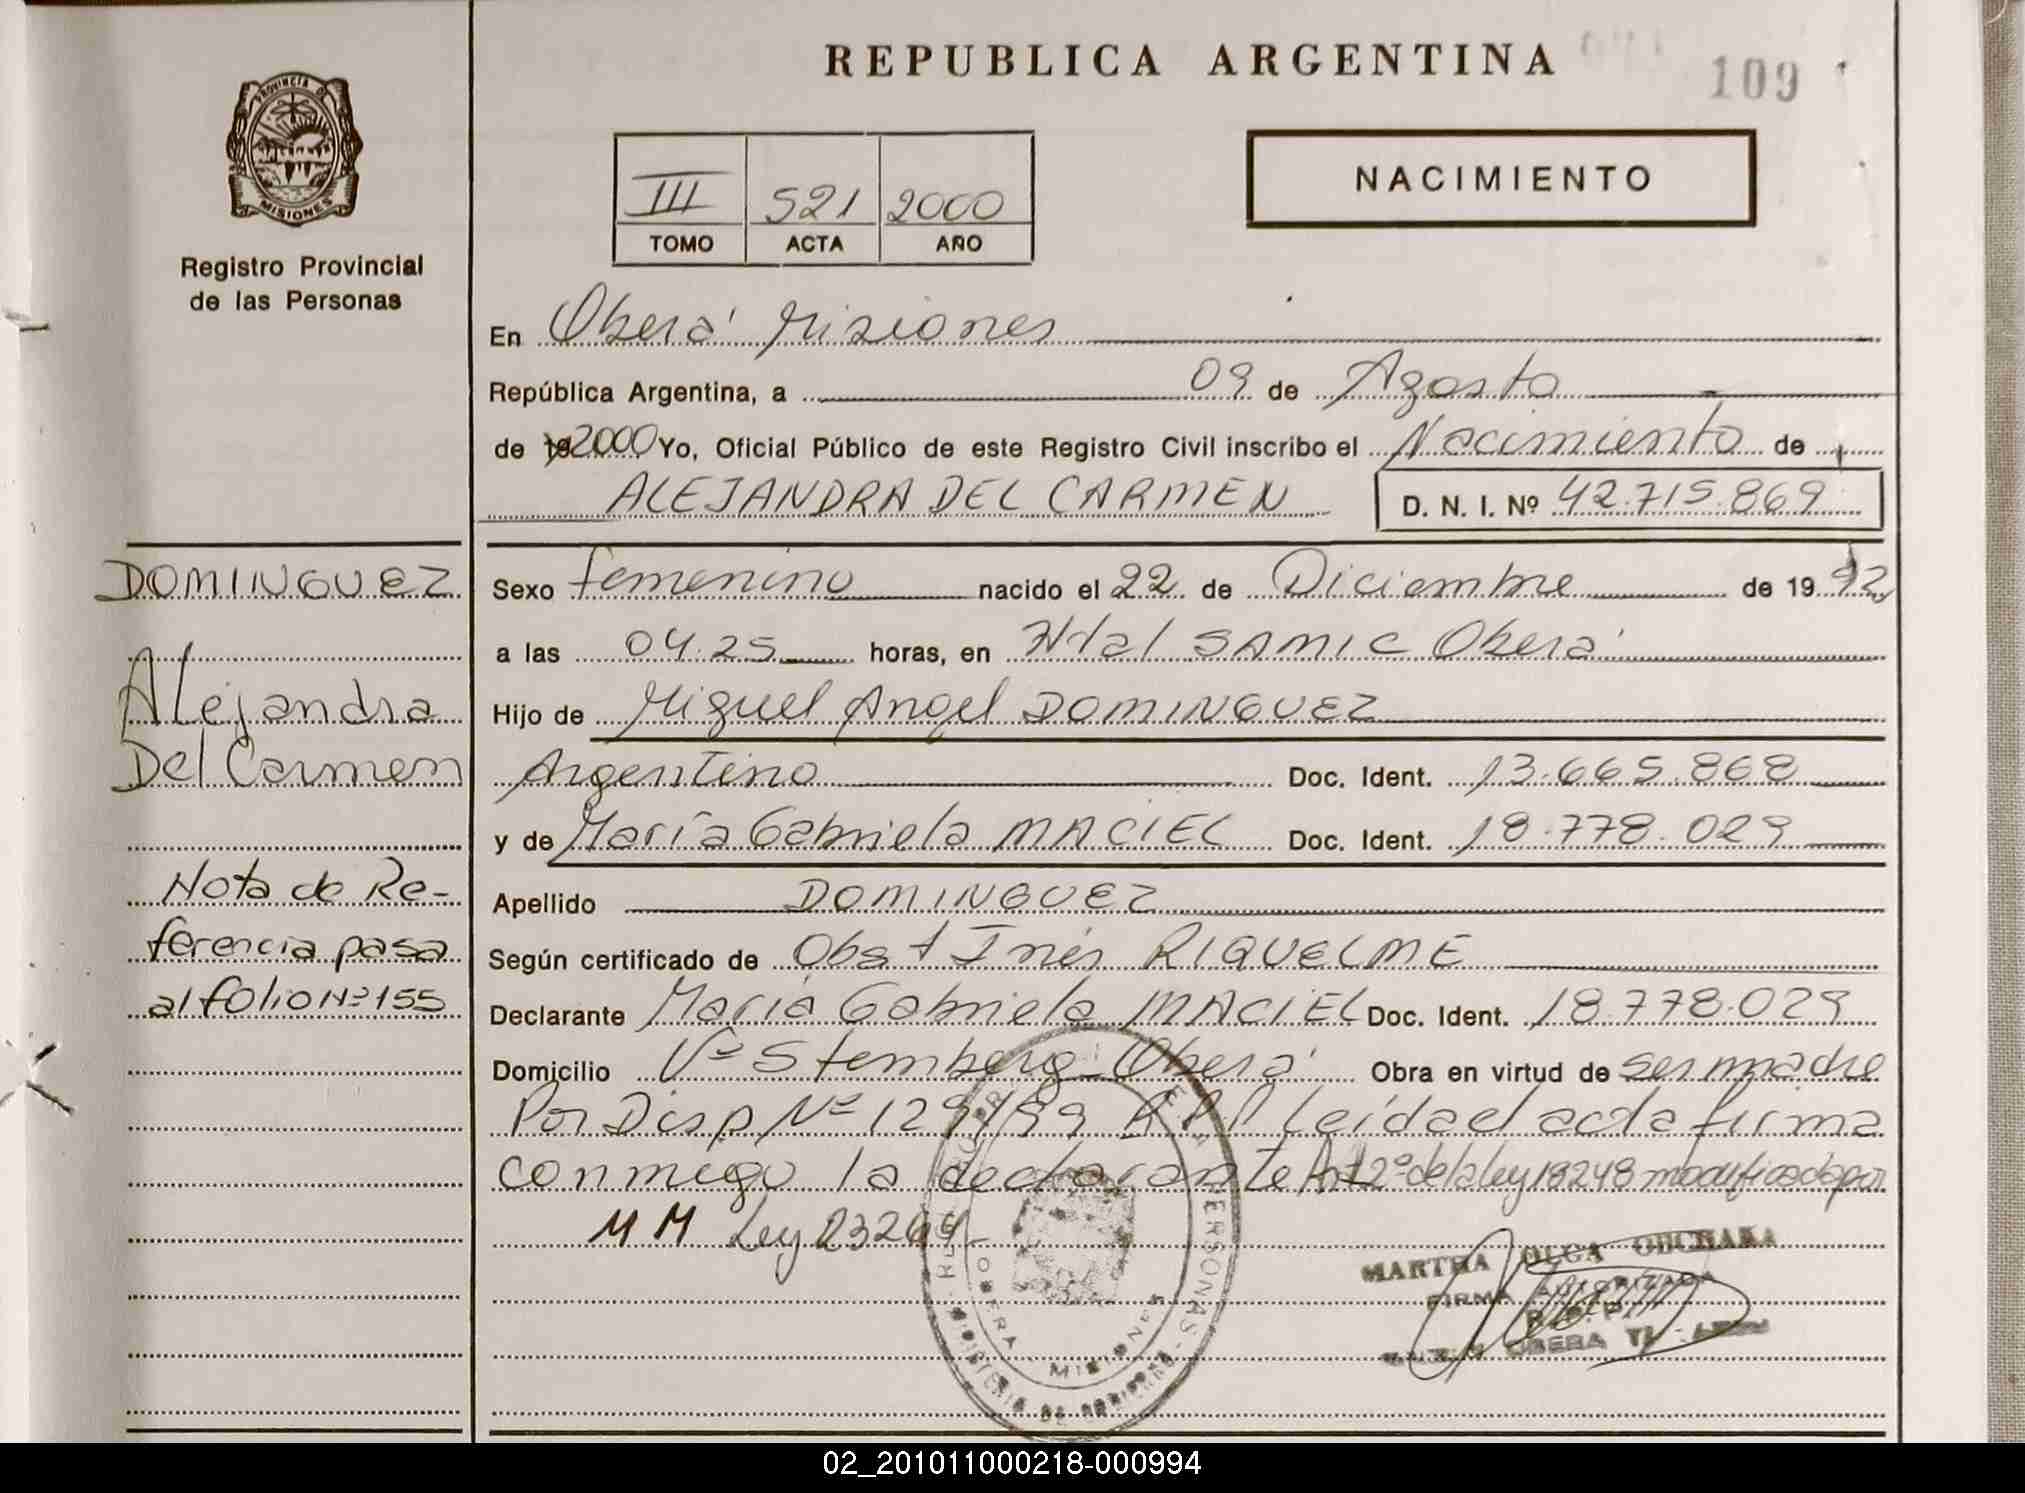 REPUBLICA ARGENTINA
109
PROVINCIA DE
MISIONES
Registro Provincial
de las Personas
III 521 2000
TOMO ACTA AÑO
NACIMIENTO
En Oberá Misiones
República Argentina, a 09 de Agosto
de 19 2000 Yo, Oficial Público de este Registro Civil inscribo el Nacimiento de
ALEJANDRA DEL CARMEN D. N. I. Nº 42.715.869
DOMINGUEZ
Alejandra
Del Carmen
Nota de Re-
ferencia pasa
al folio Nº 155
Sexo femenino nacido el 22 de Diciembre de 19 92
a las 04.25 horas, en Htal SAMIC Oberá
Hijo de Miguel Angel DOMINGUEZ
Argentino Doc. Ident. 13.665.868
y de María Gabriela MACIEL Doc. Ident. 18.778.029
Apellido DOMINGUEZ
Según certificado de Obst Inés RIQUELME
Declarante María Gabriela MACIEL Doc. Ident. 18.778.029
Domicilio Vº Stemberg-Oberá Obra en virtud de ser madre
Por Disp Nº 129/99 Leída el acta firma
conmigo la declarante Art 2º de la ley 18248 modificada por
M M Ley 23264
PERSONAS
OBERA MISIONES
MINISTERIO DE GOBIERNO
MARTHA OLGA
FIRMA AUTORIZADA
OBERA
02_201011000218-000994